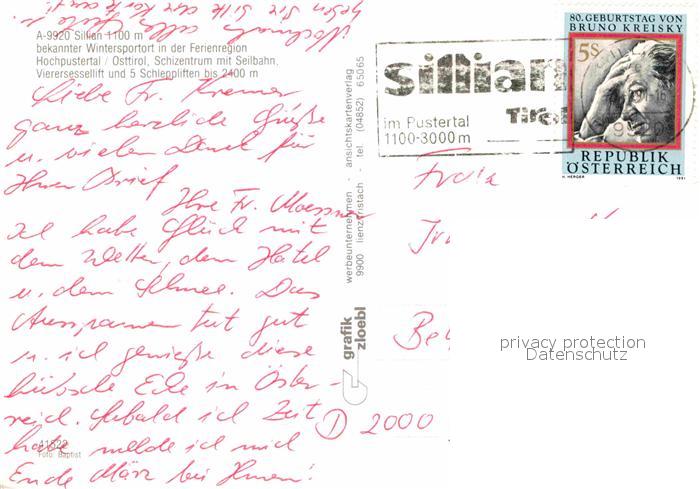 A-9920 Sillian 1100 m
bekannter Wintersportort in der Ferienregion
Hochpustertal / Osttirol, Schizentrum mit Seilbahn,
Vierersessellift und 5 Schleppliften bis 2400 m
Liebe Fr. Kremer
ganz herzliche Grüße
u. vielen Dank für
Ihren Brief
Ihre Fr. Moesner
Ich habe Glück mit
dem Wetter, dem Hotel
u. dem Schnee. Das
Ausspannen tut gut
u. ich genieße diese
hübsche Ecke in Öster-
reich. Sobald ich Zeit
habe melde ich mich
Ende März bei Ihnen!
41522
Foto: Baptist
werbeunternehmen - ansichtskartenverlag
9900 lienz/tristach - tel. (04852) 65065
grafik
zloebl
sillian
im Pustertal
1100-3000 m
Tirol
80. GEBURTSTAG VON
BRUNO KREISKY
5 S
9920
REPUBLIK
ÖSTERREICH
H. HERGER 1991
Frau
D 2000
privacy protection
Datenschutz